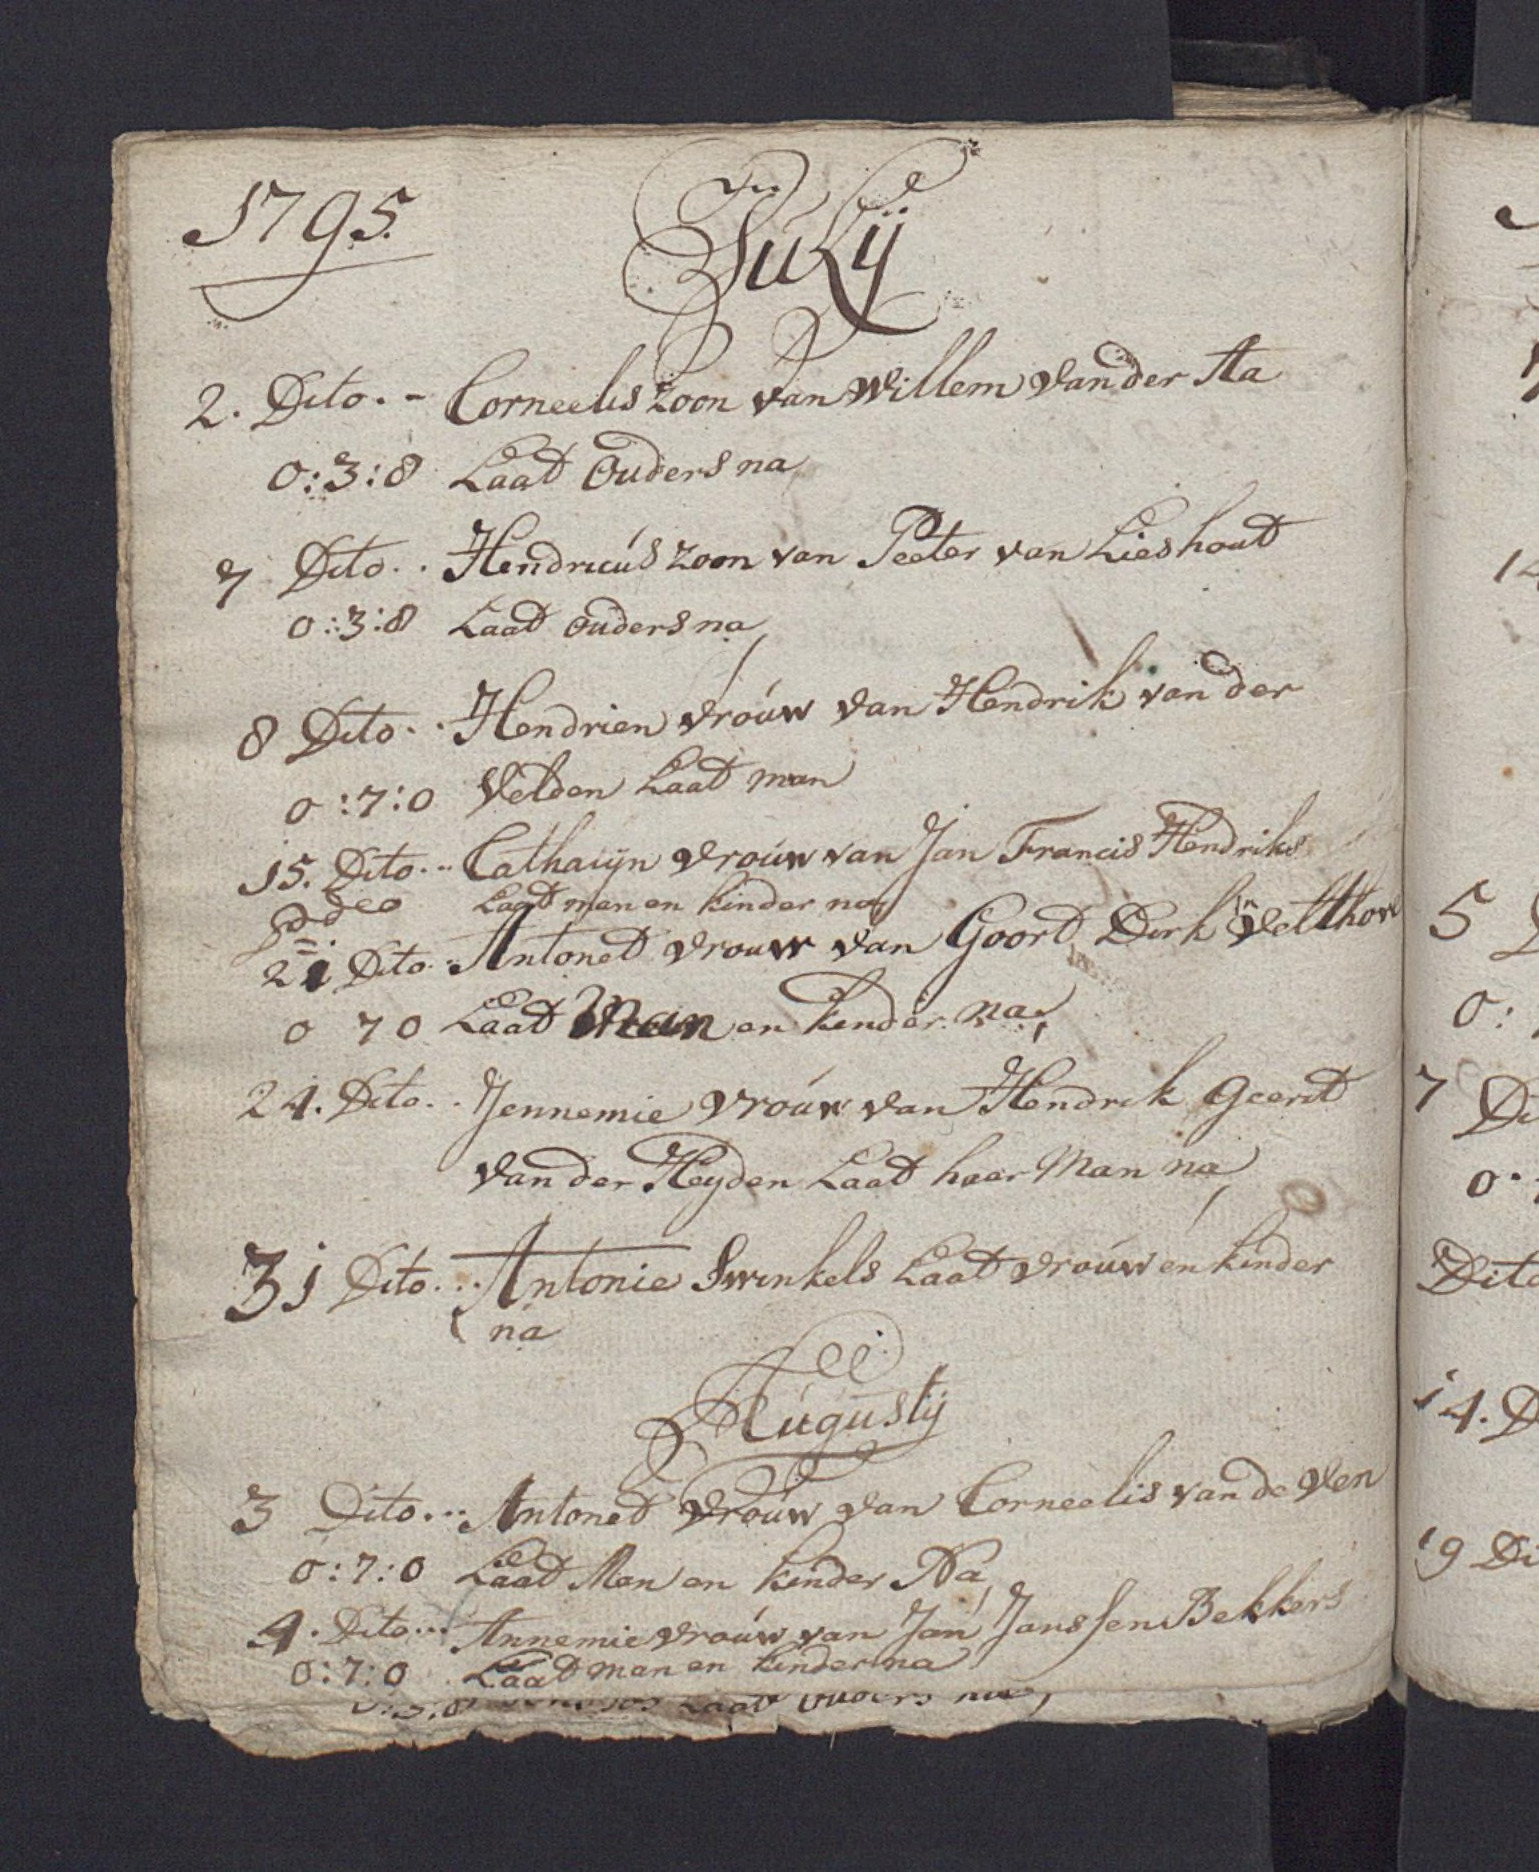 1795.
Julij
2. Dito. - Corneelis zoon van Willem van der Aa
0:3:8 Laat Ouders na
7 Dito. . Hendricus zoon van Peeter van Lieshout
0:3:8 Laat ouders na
8 Dito. . Hendrien vrouw van Hendrik van der
0:7:0 Velden Laat man
15. Dito. .. Catharijn vrouw van Jan Francis Hendriks
pdeo Laat man en kinder na
21 Dito. .. Antonet vrouw van Goort Dirk in Velthov
0 7 0 Laat Man en kinder na,
24. Dito. . Jennemie vrouw van Hendrik Geerit
van der Heyden Laat haar Man na
31 Dito. .. Antonie Swinkels Laat vrouw en kinder
na
Augustij
3 Dito... Antonet vrouw van Corneelis van de Ven
0:7:0 Laat Man en kinder Na
4. Dito... Annemie vrouw van Jan Janssen Bekkers
0:7:0 Laat man en kinder na
0:3:8 Laat Ouders na,
5
0:
7 Di
0.
Dito
14. D
19 Di